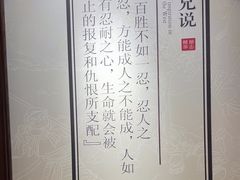 兄说
百胜不如一忍，忍人之
忍，方能成人之不能成，人如
有忍耐之心，生命就会被
止的报复和仇恨所支配』